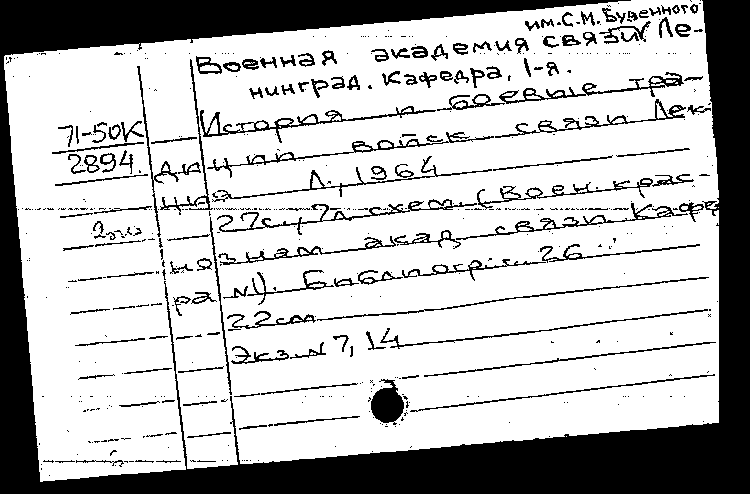 им. С. М. Буденного
Военная академия связи Ле-
нинград. Кафедра, 1-я.
71-50К
2894
История и боевые тра-
диции войск связи Лек-
ция Л., 1964
27с., 7л. схем. (Воен. крас-
нознам акад. связи Кафед
ра №1). Библиогр: с. 26
22 cm
Экз. № 7, 14